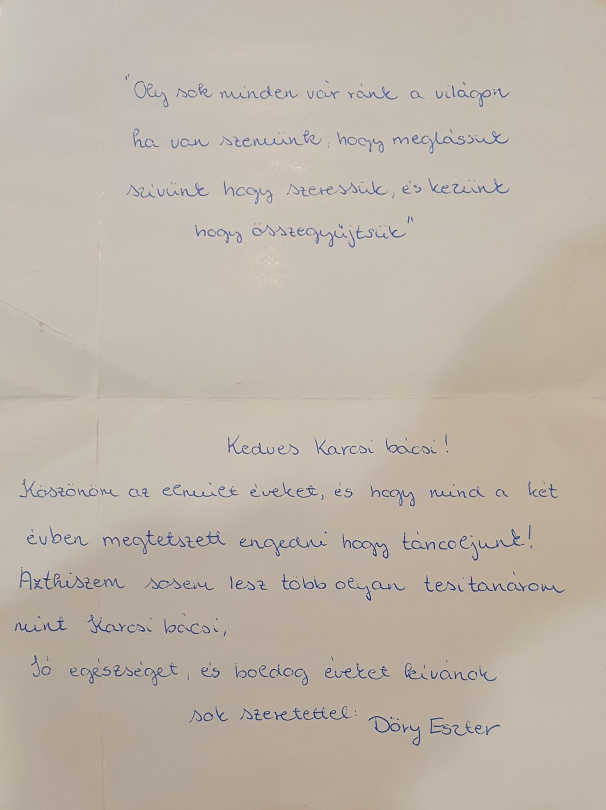 "Oly sok minden vár ránk a világon
ha van szemünk, hogy meglássuk
szivünk hogy szeressük, és kezünk
hogy összegyűjtsük"
Kedves Karcsi bácsi!
Köszönöm az elmúlt éveket, és hogy mind a két
évben megtetszett engedni hogy táncoljunk!
Azthiszem sosem lesz több olyan tesitanárom
mint Karcsi bácsi,
Jó egészséget, és boldog éveket kivánok
sok szeretettel: Dőry Eszter